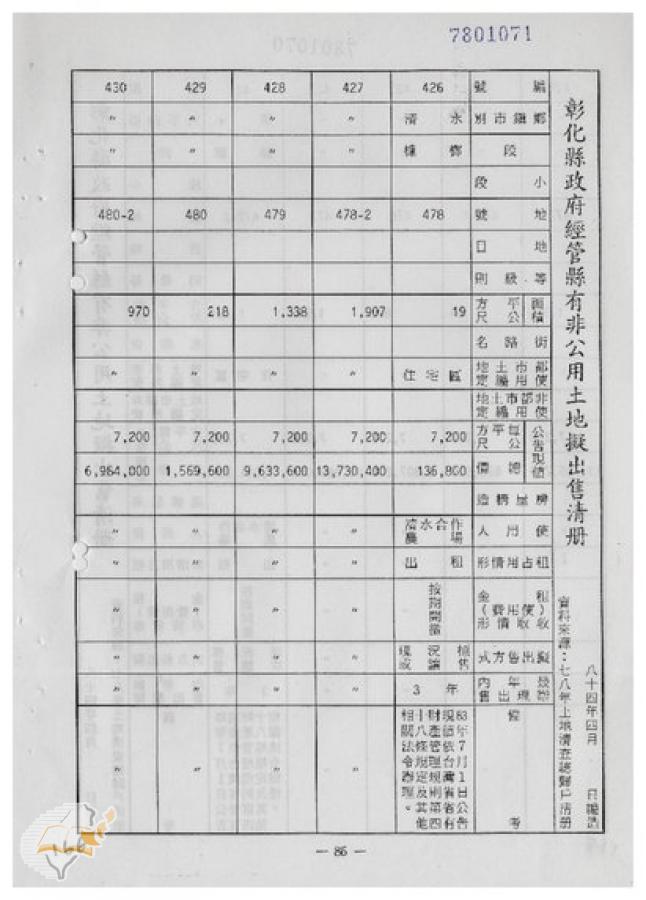 7801071
彰化縣政府經管縣有非公用土地擬出售清冊
八十四年四月 日編造
資料來源：七八年土地清查總歸戶清冊
編號 426 427 428 429 430
鄉鎮市別 〃 〃 〃 〃
段 〃 〃 〃 〃
小段
地號 478 478-2 479 480 480-2
地目
等級則
面積 平方公尺 19 1,907 1,338 218 970
街路名
都市土地使用編定 住宅區 〃 〃 〃 〃
非都市土地使用編定
公告現值 每平方公尺 7,200 7,200 7,200 7,200 7,200
總價 136,800 13,730,400 9,633,600 1,569,600 6,984,000
房屋構造
使用人 清水合作農場 〃 〃 〃 〃
租占用情形 出租 〃 〃 〃 〃
租金（使用費）收取情形 按期開徵 〃 〃 〃 〃
擬出售方式 現況標售或讓售 〃 〃 〃 〃
最近年內辦出售 3年 〃 〃 〃 〃
備考 83年7月1日公告現值依台灣省省有財產管理規則第四十八條規定及其他相關法令辦理。 〃 〃 〃 〃
— 86 —
168